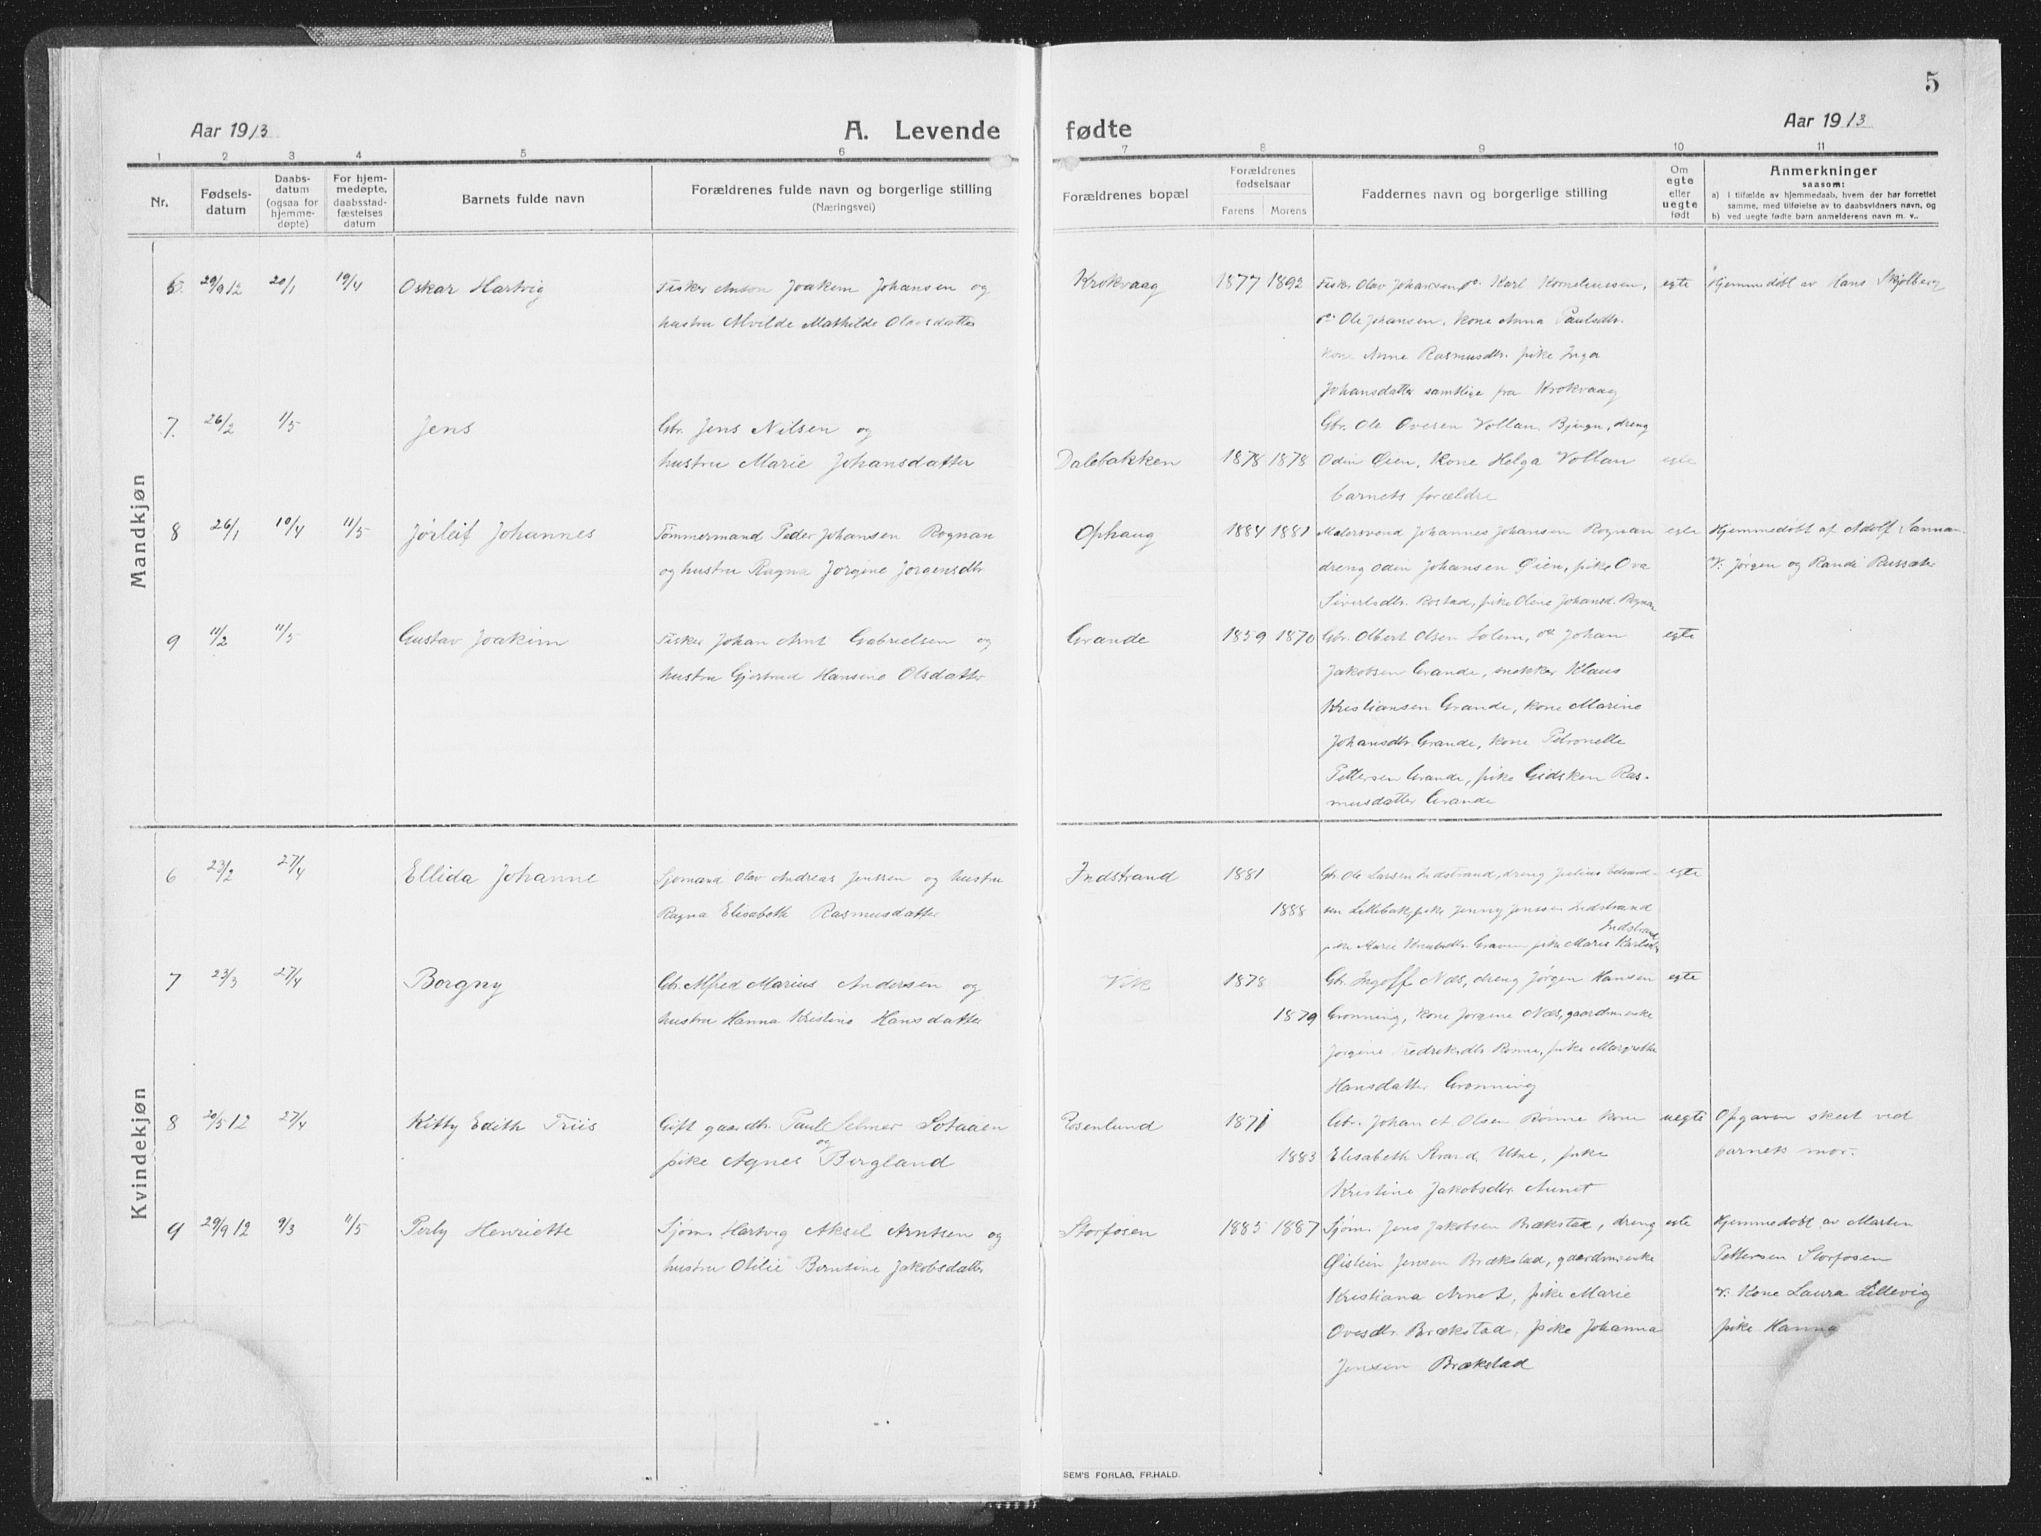 5
Aar 1913
A. Levende fødte
Aar 1913
1 2 3 4 5 6 7 8 9 10 11
Nr.
Fødsels-
datum
Daabs-
datum
(ogsaa for
hjemme-
døpte)
For hjem-
medøpte,
daabsstad-
fæstelses
datum
Barnets fulde navn
Forældrenes fulde navn og borgerlige stilling
(Næringsvei)
Forældrenes bopæl
Forældrenes
fødselsaar
Farens Morens
Faddernes navn og borgerlige stilling
Om
egte
eller
uegte
født
Anmerkninger
saasom:
a) I tilfælde av hjemmedaab, hvem der har forrettet
samme, med tilføielse av to daabsvidners navn, og
b) ved uegte fødte barn anmelderens navn m. v..
Mandkjøn
6. 29/9 12 20/1 19/4 Oskar Hartvig
Fisker Anton Joakim Johansen og
hustru Alvilde Mathilde Olavsdatter
Krokvaag 1877 1892
Fisker Olav Johansen, do Karl Korneliussen,
do Ole Johansen, kone Anna Paulsdtr.
kone Anne Rasmusdtr. pike Inga
Johansdatter samtlige fra Krokvaag
egte
Hjemmedøbt av Hans Skjølberg
7. 26/2 1/5 Jens
Gbr. Jens Nilsen og
hustru Marie Johansdatter
Dalebakken 1878 1878
Gbr. Ole Ovesen Vollan Bjugn, dreng
Odin Øien, Kone Helga Vollan
barnets forældre
egte
8 26/1 10/4 11/5 Jørleif Johannes
Tømmermand Peder Johansen Rognan
og hustru Ragna Jørgine Jørgensdtr
Ophaug 1884 1881
Malersvend Johannes Johansen Rognan
dreng Odin Johansen Øien, pike Ova
Sivertsdtr. Rostad, pike Oline Johansd. Rognan
egte
Hjemmedøbt af Adolf Sannan
v. Jørgen og Randi
9 11/2 11/5 Gustav Joakim
Fisker Johan Arnt Gabrielsen og
hustru Gjertrud Hansine Olsdatter
Grande 1859 1870
Gbr. Olbert Olsen Solem, do Johan
Jakobsen Grande, snekker Klaus
Kristiansen Grande, kone Marine
Johansdtr. Grande, kone Petronelle
Pettersen Grande, pike Gidsken Ras-
musdatter Grande
egte
Kvindekjøn
6 23/2 27/4 Ellida Johanne
Sjømand Olav Andreas Jenssen og hustru
Ragna Elisabeth Rasmusdatter
Indstrand 1881
1888
Gbr. Ole Larsen Indstrand, dreng Julius Edvard-
sen Lillebak, pike Jenny Jenssen Indstrand
Indstrand
pike Marie Knutsdtr. Graven pike Marie
egte
7 23/3 27/4 Borgny
Gbr. Alfred Marius Andersen og
hustru Hanna Kristine Hansdatter
Vik 1878
1879
Gbr. Ingolf Næs, dreng Jørgen Hansen
Grønning, kone Jørgine Næs, gaardmenske
Jørgine Fredriksdtr. Rønne, pike Margrethe
Hansdatter Grønning
egte
8 20/5 12 27/4 Kitty Edith Friis
Gift gaardbr. Paul Selmer Sotaaen
og
pike Agnes Bergland
Rosenlund 1871
1883
Gbr. Johan A. Olsen Rønne kone
Elisabeth Strand Utne, pike
Kristine Jakobsdtr. Aunet
uegte
Opgaven skeet ved
barnets mor.
9 29/9 12 9/3 11/5 Perly Henriette
Sjøm. Hartvig Aksel Arntsen og
hustru Otilie Berntine Jakobsdatter
Storfosen 1885 1887
Sjøm. Jens Jakobsen Brækstad, dreng
Øistein Jensen Brækstad, gaardmenske
Kristiana Arnet, pike Marie
Ovesdtr. Brækstad, pike Johanna
Jensen Brækstad
egte
Hjemmedøbt av Martin
Pettersen Storfosen
v. Kone Laura Lillevig
pike Hanna
SEM'S FORLAG, FR.HALD.